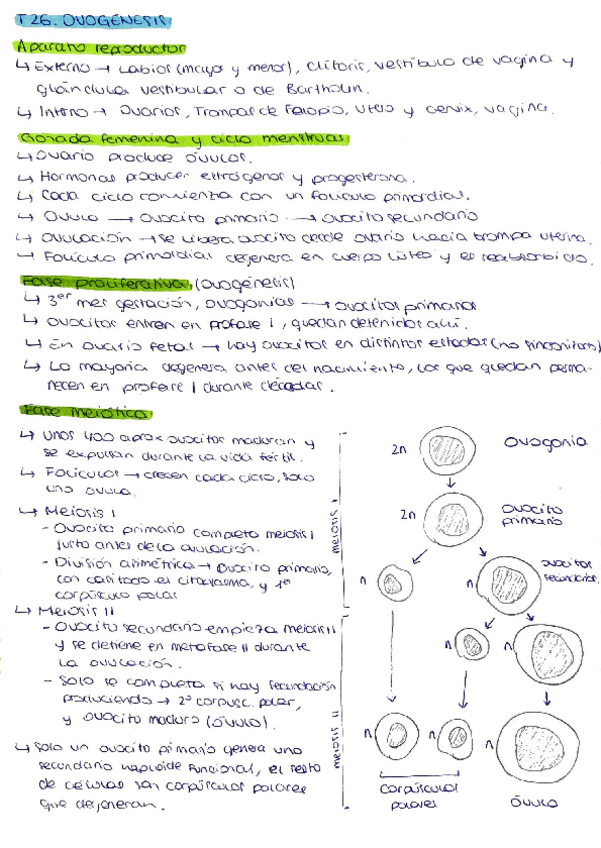 T26. OVOGÉNESIS
Aparato reproductor
↳ Externo → Labios (mayor y menor), clítoris, vestíbulo de vagina y
glándula vestibular o de Bartholin.
↳ Interno → Ovarios, Trompas de Falopio, Útero y cervix, vagina.
Gónada femenina y ciclo menstrual
↳ Ovario produce óvulos.
↳ Hormonas producen estrógenos y progesterona.
↳ Cada ciclo comienza con un folículo primordial.
↳ Óvulo → Ovocito primario → Ovocito secundario
↳ Ovulación → Se libera ovocito desde ovario hacia trompa uterina.
↳ Folículo primordial degenera en cuerpo lúteo y es reabsorbido.
Fase proliferativa (ovogénesis)
↳ 3er mes gestación, ovogonias → ovocitos primarios
↳ Ovocitos entran en profase I, quedan detenidos ahí.
↳ En ovario fetal → hay ovocitos en distintos estados (no sincronizado)
↳ La mayoría degenera antes del nacimiento, los que quedan perma-
necen en profase I durante décadas.
Fase meiótica
↳ Unos 400 aprox ovocitos maduran y
se expulsan durante la vida fértil.
↳ Folículos → crecen cada ciclo, solo
uno ovula.
↳ Meiosis I
- Ovocito primario completa meiosis I
justo antes de la ovulación.
- División asimétrica → Ovocito primario,
con casi todo el citoplasma, y 1er
corpúsculo polar
↳ Meiosis II
- Ovocito secundario empieza meiosis II
y se detiene en metafase II durante
la ovulación.
- Solo se completa si hay fecundación
produciendo → 2º corpusc. polar,
y ovocito maduro (óvulo).
↳ Solo un ovocito primario genera uno
secundario haploide funcional, el resto
de células son corpúsculos polares
que degeneran.
meiosis I
meiosis II
2n
Ovogonia
2n
Ovocito
primario
n
n
ovocitos
secundarios
n
n
n
n
n
corpúsculos
polares
óvulo